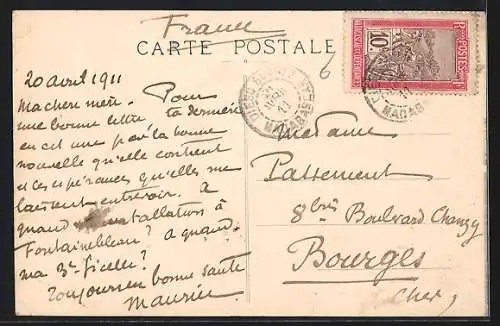 France
CARTE POSTALE
6
20 avril 1911
Ma chère mère. Pour
une bonne lettre, ta dernière
en est une par la bonne
nouvelle qu'elle contient
et les espérances qu'elle me
laissent entrevoir. A
quand installation à
Fontainebleau? a quand
ma 3e ficelle?
Toujours en bonne santé
Maurice
10
POSTES
MADAGASCAR ET DEPENDANCES
MADAG
11
Madame
8 bis Boulevard Chanzy
Bourges
Cher